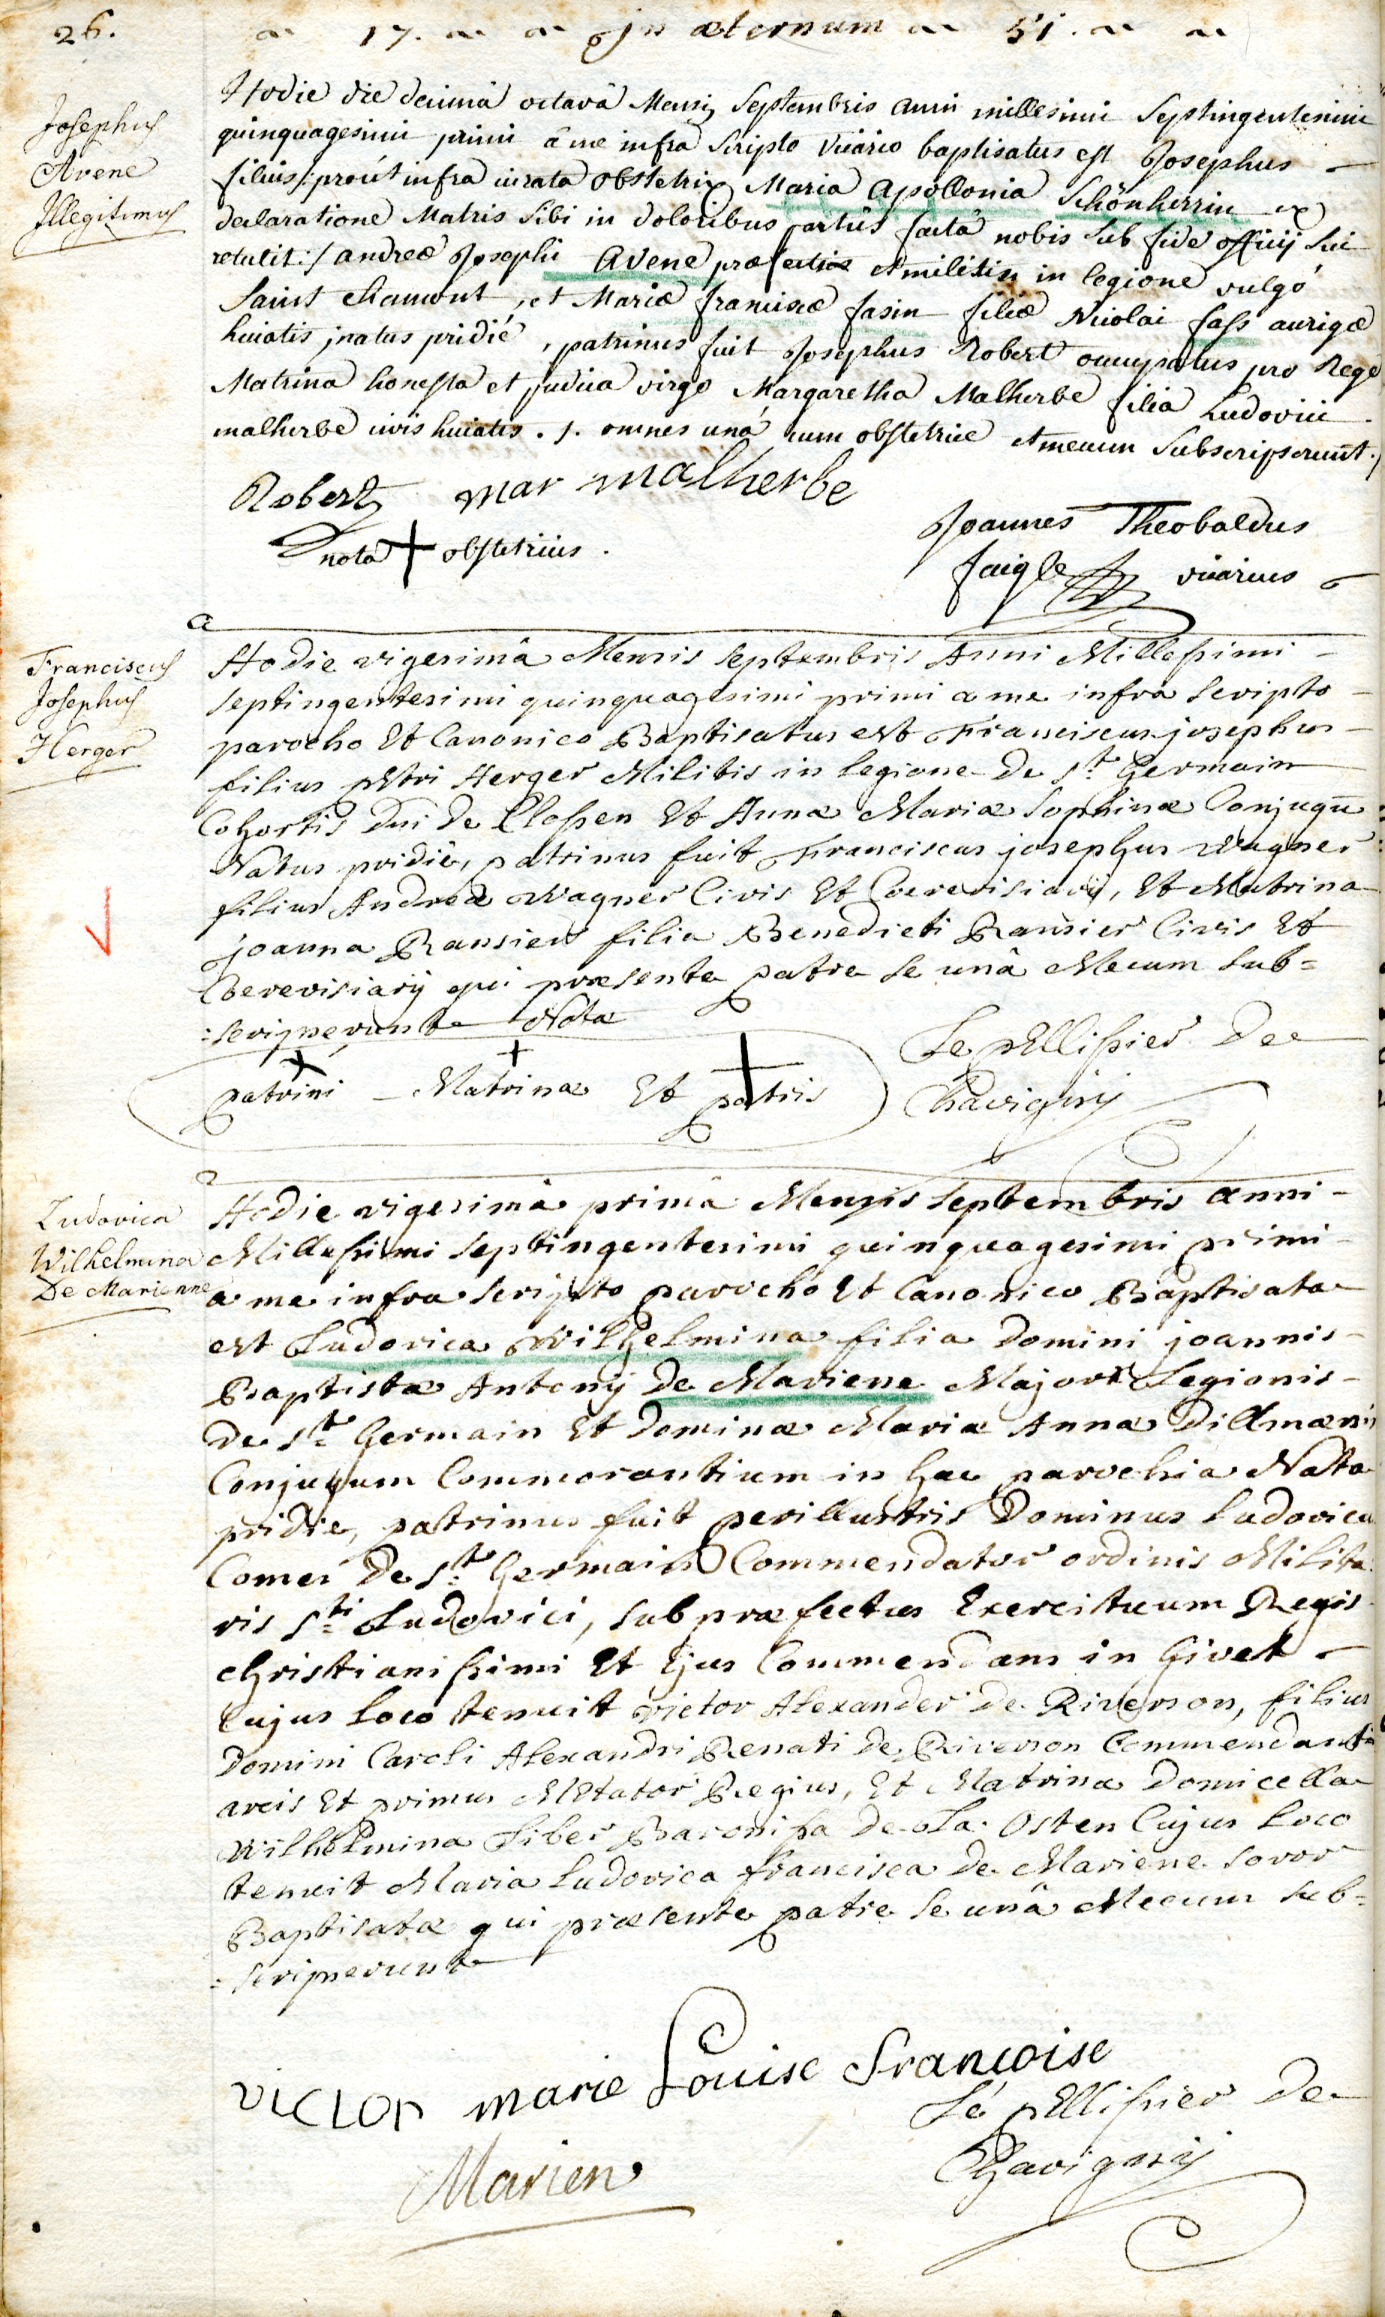 26. 17. In æternum 51.
Josephus
Avene
Illegitimus
Hodie die decimâ octavâ Mensis Septembris anni millesimi Septingentesimi
quinquagesimi primi â me infra Scripto Vicario baptisatus est Josephus
filius /: proút infra iurata obstetrix Maria Apollonia Schönherrin ex
declaratione Matris Sibi in doloribus partûs factâ nobis Sub fide officij Sui
retulit :/ andreæ Josephi Avene præfectiæ et militis in legione vulgó
Saint Chamont, et Mariæ franciscæ fasin filiæ Nicolai fass aurigæ
huiatis, natus pridié, patrinus fuit Josephus Robert occupatus pro Rege
Matrina honesta et pudica virgo Margaretha Malherbe filia Ludovici
malherbe civis huiatis. /. omnes unâ cum obstetrice et mecum Subscripserunt./
Robert mar malherbe
nota + obstetricis.
Joannes Theobaldus
faigle vicarius
Franciscus
Josephus
Herger
Hodie vigesimâ Mensis Septembris Anni Millessimi
septingentesimi quinquagesimi primi a me infrâ scripto
parocho Et Canonico Baptisatus est Franciscus josephus
filius pEtri Herger Militis in legione De St Germain
Cohortis Dni De Clossen Et Annæ Mariæ Sophinæ Conjugū
Natus pridiè, patrinus fuit Franciscus josephus Wagner
filius Andreæ Wagner Civis Et Cerevisiarij, Et Matrina
joanna Bansier filia Benedicti Bansier Civis Et
Cerevisiarij qui præsente patre se unâ Mecum sub=
=scripserunt Nota
+ + +
patrini Matrinæ Et patris
Le pEllissier De
Chavignij
Ludovica
Wilhelmina
De Marienne
Hodie vigesimâ primâ Mensis Septembris anni
Millessimi septingentesimi quinquagesimi primi
a me infra scripto parocho Et Canonico Baptisata
est Ludovica Wilhelmina filia Domini joannis
Baptistæ Antonij De Mariene Majoris Legionis
De St Germain Et Dominæ Mariæ Annæ Dillmæni
Conjugum Commorantium in hac parochia Nata
pridie, patrinus fuit perillustris Dominus Ludovicus
Comes De St Germain Commendator ordinis Milita
ris Sti Ludovici, subpræfectus Exercituum Regis
christianissimi Et Ejus Commendans in Givet
Cujus Loco tenuit victor Alexander De Riverson, filius
Domini Caroli Alexandri Renati De Riverson Commendantis
arcis Et primus MEtator Regius, Et Matrina Domicella
Wilhelmina Liber Baronissa De La Osten Cujus Loco
tenuit Maria Ludovica francisca De Mariene soror
Baptisatæ qui præsente patre se unâ Mecum sub=
=scripserunt
VICTOR marie Louise francoise
Marien
Le pEllissier De
Chavignij